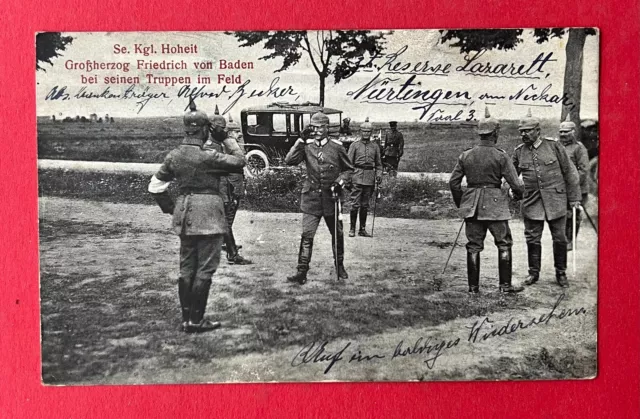 Se. Kgl. Hoheit
Großherzog Friedrich von Baden
bei seinen Truppen im Feld
Reserve Lazarett,
Nürtingen, am Neckar,
Saal 3.
Abs.
Auf ein baldiges Wiedersehen,